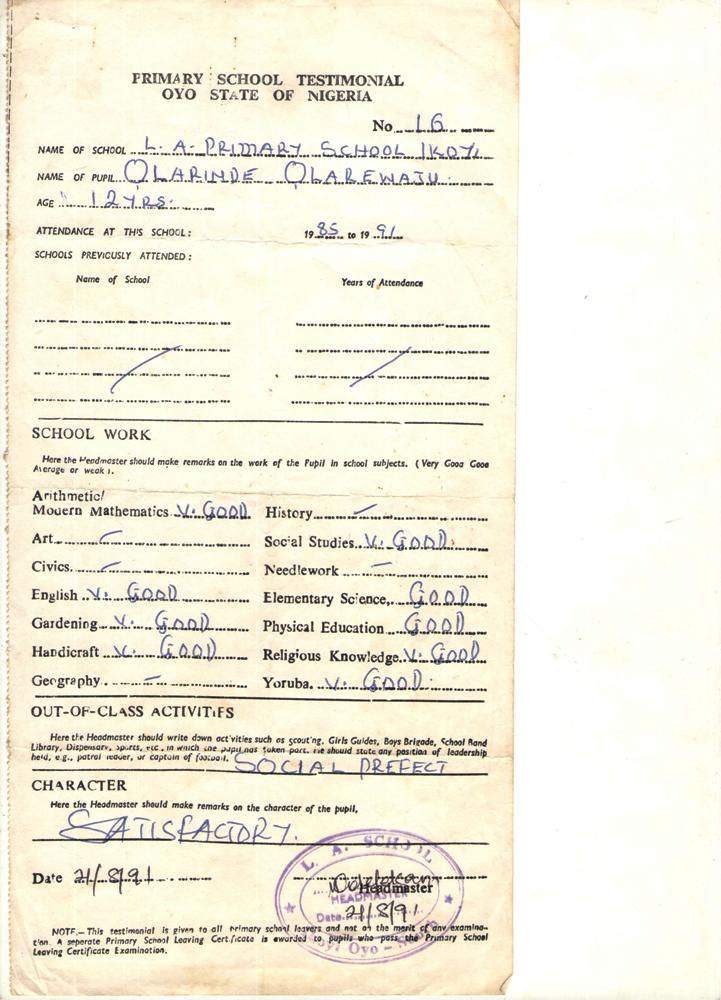 PRIMARY SCHOOL TESTIMONIAL
OYO STATE OF NIGERIA
No 16
NAME OF SCHOOL L. A. PRIMARY SCHOOL IKOYI
NAME OF PUPIL OLARINDE OLAREWAJU.
AGE 12 YRS.
ATTENDANCE AT THIS SCHOOL: 1985 to 1991
SCHOOLS PREVIOUSLY ATTENDED:
Name of School Years of Attendance
SCHOOL WORK
Here the Headmaster should make remarks on the work of the Pupil in school subjects. (Very Good Good
Average or weak).
Arithmetic/
Modern Mathematics V. GOOD History
Art Social Studies V. GOOD.
Civics Needlework
English V. GOOD Elementary Science, GOOD
Gardening V. GOOD Physical Education GOOD
Handicraft V. GOOD Religious Knowledge V. GOOD
Geography Yoruba. V. GOOD
OUT-OF-CLASS ACTIVITIES
Here the Headmaster should write down activities such as scouting, Girls Guides, Boys Brigade, School Band
Library, Dispensary, Sports, etc., in which the pupil has taken part. He should state any position of leadership
held, e.g., patrol leader, or captain of football. SOCIAL PREFECT
CHARACTER
Here the Headmaster should make remarks on the character of the pupil,
SATISFACTORY.
L. A. SCHOOL
Date 21/8/91
Headmaster
HEADMASTER
Date 21/8/91
Oyo
NOTE.—This testimonial is given to all primary school leavers and not on the merit of any examina-
tion. A seperate Primary School Leaving Certificate is awarded to pupils who pass the Primary School
Leaving Certificate Examination.